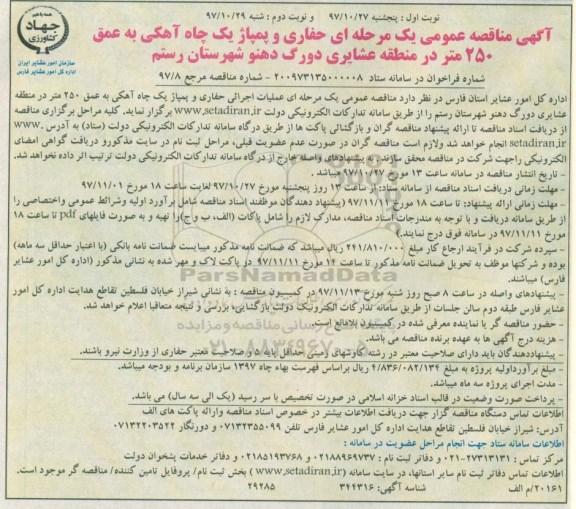 نوبت اول: پنجشنبه ۹۷/۱۰/۲۷ و نوبت دوم: شنبه ۹۷/۱۰/۲۹
همه با هم
جهاد
کشاورزی
سازمان امور عشایر ایران
اداره کل امور عشایر فارس
آگهی مناقصه عمومی یک مرحله ای حفاری و پمپاژ یک چاه آهکی به عمق
۲۵۰ متر در منطقه عشایری دورگ دهنو شهرستان رستم
شماره فراخوان در سامانه ستاد ۲۰۰۹۷۳۱۳۵۰۰۰۰۰۸ – شماره مناقصه مرجع ۹۷/۸
اداره کل امور عشایر استان فارس در نظر دارد مناقصه عمومی یک مرحله ای عملیات اجرائی حفاری و پمپاژ یک چاه آهکی به عمق ۲۵۰ متر در منطقه
عشایری دورگ دهنو شهرستان رستم را از طریق سامانه تدارکات الکترونیکی دولت www.setadiran.ir برگزار نماید. کلیه مراحل برگزاری مناقصه
از دریافت اسناد مناقصه تا ارائه پیشنهاد مناقصه گران و بازگشائی پاکت ها از طریق درگاه سامانه تدارکات الکترونیکی دولت (ستاد) به آدرس www.
setadiran.ir انجام خواهد شد ولازم است مناقصه گران در صورت عدم عضویت قبلی، مراحل ثبت نام در سایت مذکورو دریافت گواهی امضای
الکترونیکی راجهت شرکت در مناقصه محقق سازند. به پیشنهادهای واصله خارج از درگاه سامانه تدارکات الکترونیکی دولت ترتیب اثر داده نخواهد شد.
- تاریخ انتشار مناقصه در سامانه ساعت ۱۳ مورخ ۹۷/۱۰/۲۷ میباشد.
- مهلت زمانی دریافت اسناد مناقصه از سامانه ستاد: از ساعت ۱۳ روز پنجشنبه مورخ ۹۷/۱۰/۲۷ لغایت ساعت ۱۸ مورخ ۹۷/۱۱/۰۱
- مهلت زمانی ارائه پیشنهاد: تا ساعت ۱۸ مورخ ۹۷/۱۱/۱۱ (پیشنهاد دهندگان موظفند اسناد مناقصه شامل برآورد اولیه وشرائط عمومی واختصاصی را
از طریق سامانه دریافت و با توجه به مندرجات اسناد مناقصه، مدارک لازم را شامل پاکات (الف، ب و ج) را تهیه و به صورت فایلهای pdf تا ساعت ۱۸
مورخ ۹۷/۱۱/۱۱ در سامانه فوق درج نمایند.)
- سپرده شرکت در فرآیند ارجاع کار مبلغ ۲۴۱/۸۱۰/۰۰۰ ریال میباشد که ضمانت نامه مذکور میبایست ضمانت نامه بانکی (با اعتبار حداقل سه ماهه)
بوده و شرکتها موظف به تحویل ضمانت نامه مذکور تا ساعت ۱۴ مورخ ۹۷/۱۱/۱۱ در پاکت لاک و مهر شده به نشانی مذکور (اداره کل امور عشایر
فارس) میباشند.
- پیشنهادهای واصله در ساعت ۸ صبح روز شنبه مورخ ۹۷/۱۱/۱۳ در کمیسیون مناقصه: به نشانی شیراز خیابان فلسطین تقاطع هدایت اداره کل امور
عشایر فارس طبقه دوم سالن جلسات از طریق سامانه تدارکات الکترونیک دولت بازگشایی، بررسی و نتیجه متعاقبا اعلام خواهد شد.
حضور مناقصه گر یا نماینده معرفی شده در کمیسیون بلامانع است.
- هزینه درج آگهی ها به عهده برنده مناقصه می باشد.
- پیشنهاددهندگان باید دارای صلاحیت معتبر در رشته کاوشهای زمینی حداقل پایه ۵ و صلاحیت معتبر حفاری از وزارت نیرو باشند.
- مبلغ برآورداولیه پروژه به مبلغ ۴/۸۳۶/۰۸۲/۱۳۴ ریال براساس فهرست بهاء چاه ۱۳۹۷ سازمان برنامه و بودجه میباشد.
- مدت اجرای پروژه سه ماه میباشد.
- پرداخت صورت وضعیت در قالب اسناد خزانه اسلامی در صورت تخصیص با سر رسید (یک الی سه سال) می باشد.
اطلاعات تماس دستگاه مناقصه گزار جهت دریافت اطلاعات بیشتر در خصوص اسناد مناقصه وارائه پاکت های الف
آدرس: شیراز خیابان فلسطین تقاطع هدایت اداره کل امور عشایر فارس تلفن ۰۷۱۳۲۳۵۵۰۹۹ و دورنگار ۰۷۱۳۲۲۰۳۵۲۲
اطلاعات سامانه ستاد جهت انجام مراحل عضویت در سامانه:
مرکز تماس: ۲۷۳۱۳۱۳۱-۰۲۱ و دفاتر ثبت نام: ۰۲۱۸۸۹۶۹۷۳۷ و ۰۲۱۸۵۱۹۳۷۶۸ و دفاتر خدمات پشخوان دولت
اطلاعات تماس دفاتر ثبت نام سایر استانها، در سایت سامانه (www.setadiran.ir) بخش ثبت نام/ پروفایل تامین کننده/ مناقصه گر موجود است.
۲۰۱۶۱/م الف شناسه آگهی: ۳۴۴۳۱۶ ۲۹۲۸۵
ParsNamadData
۰۲۱-۸۸۳۴۹۶۷۰-۵